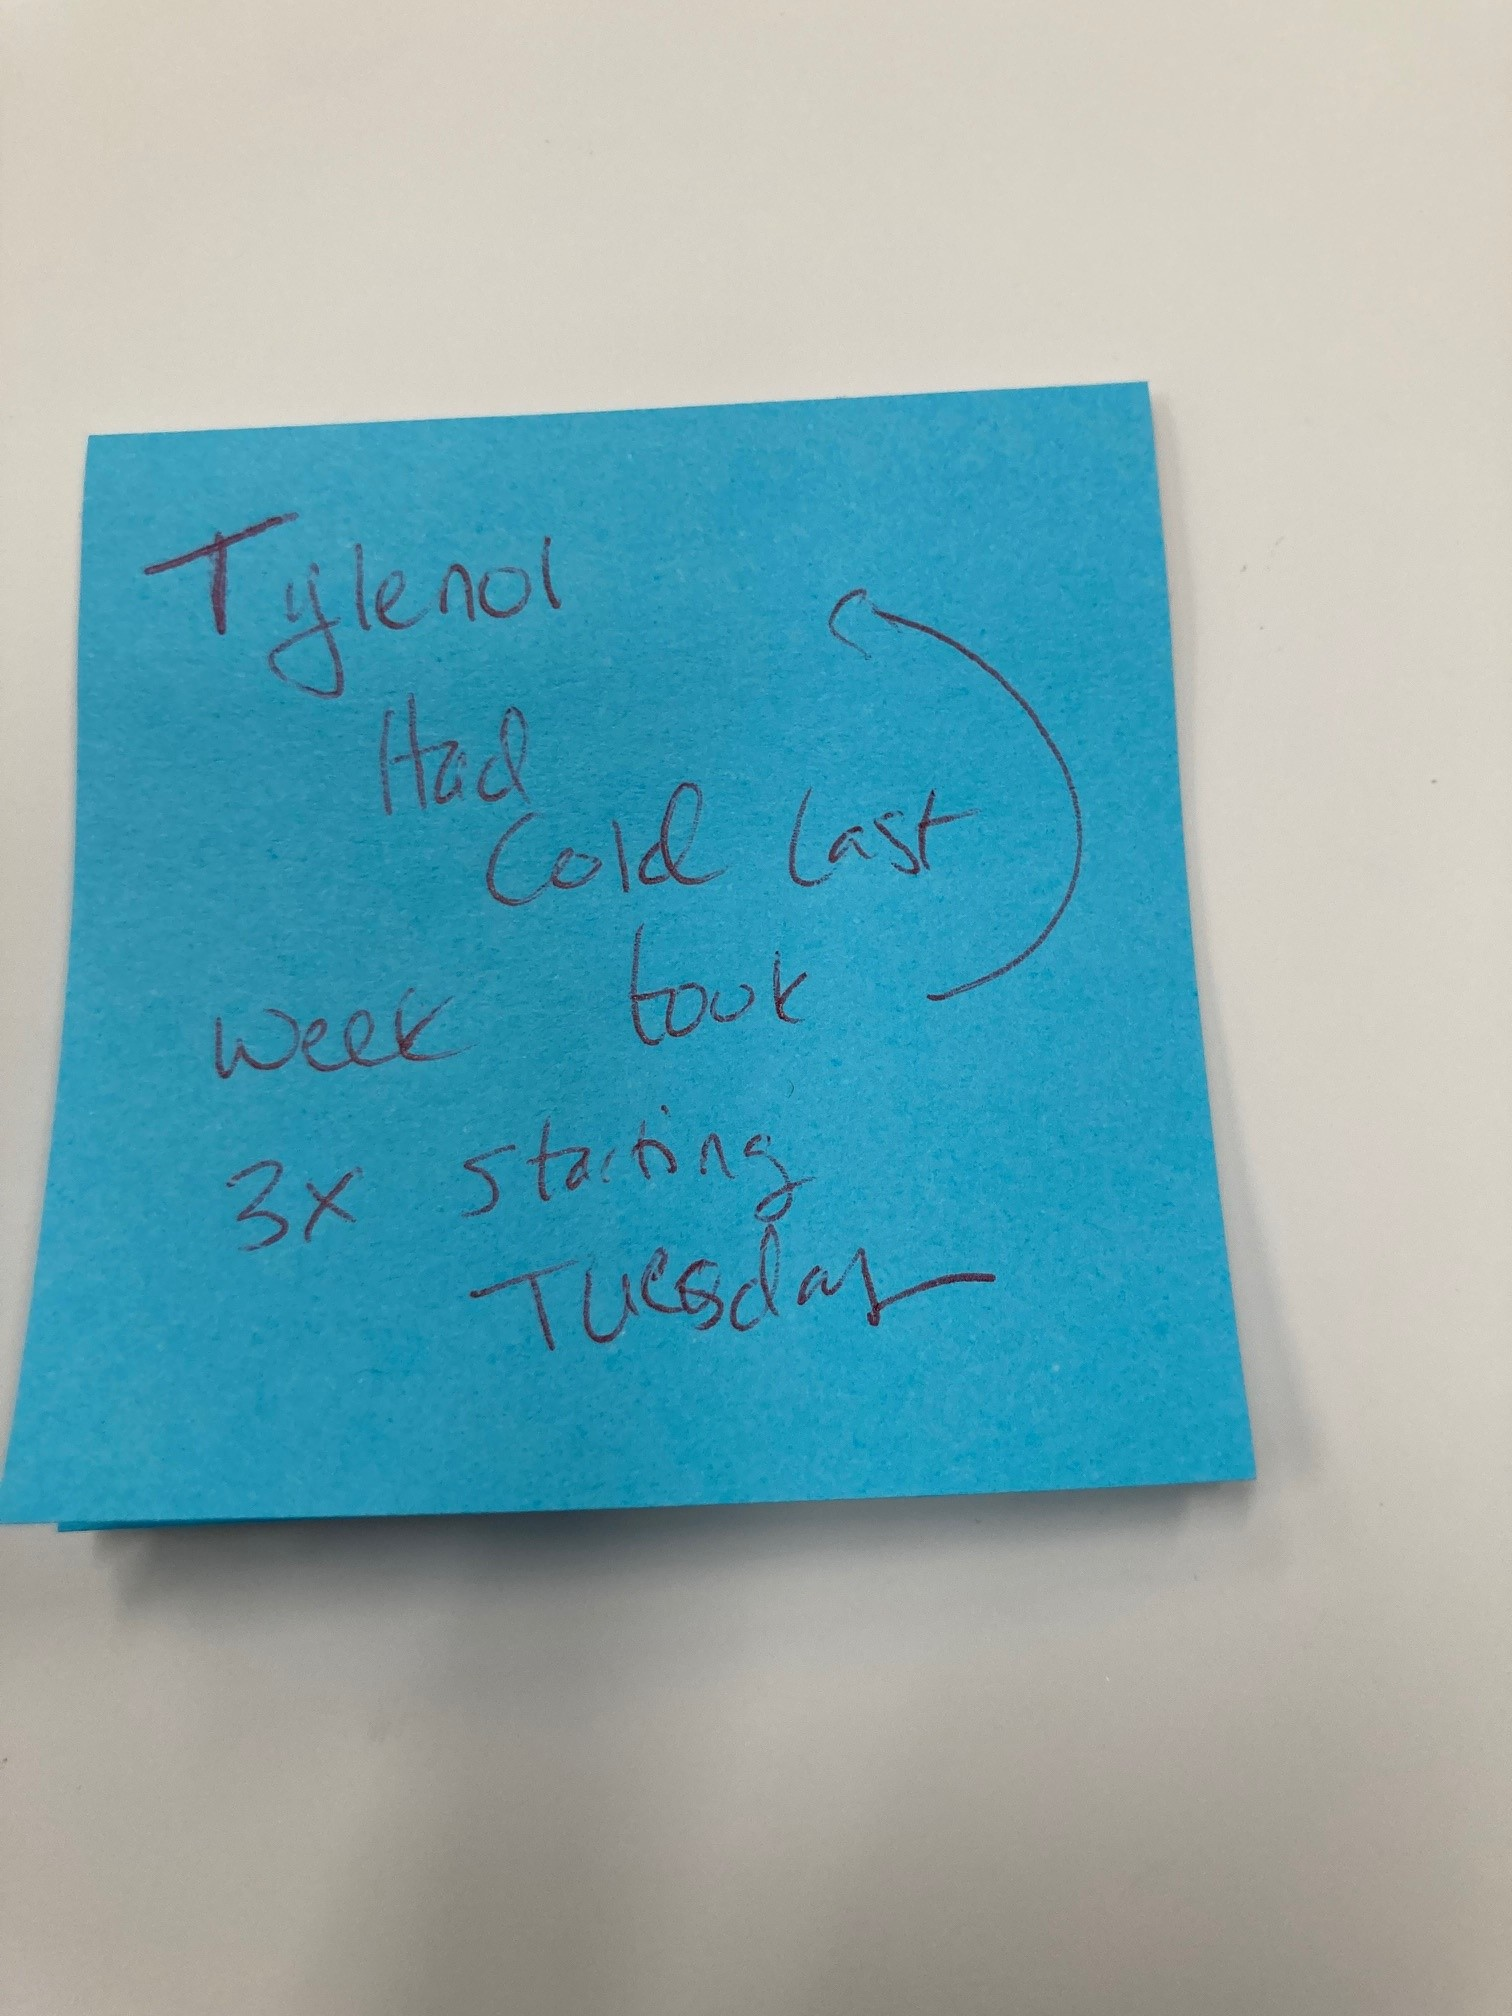 Tylenol
Had
Cold last
week took
3x starting
Tuesday